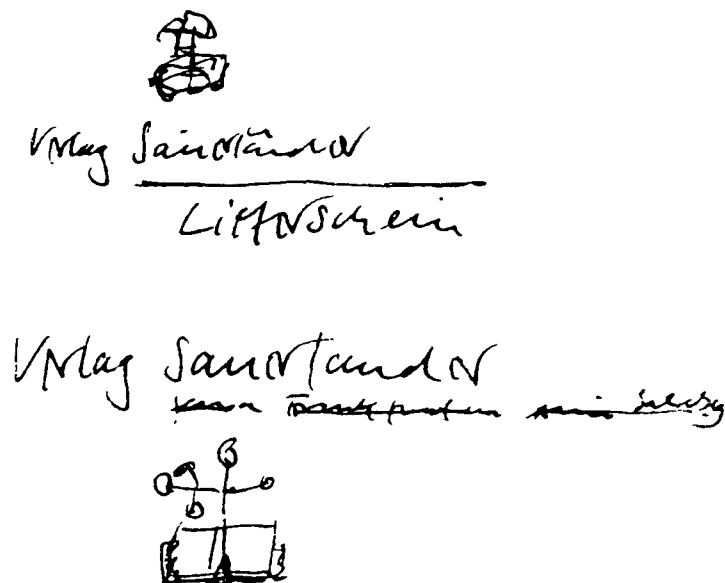 Verlag Sauerländer
Lieferschein
Verlag Sauerländer